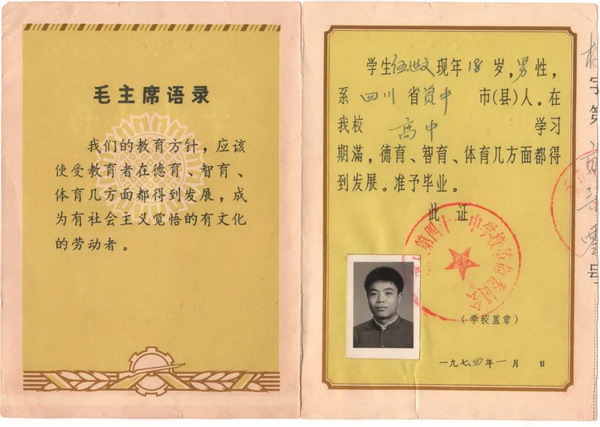 毛主席语录
我们的教育方针，应该
使受教育者在德育、智育、
体育几方面都得到发展，成
为有社会主义觉悟的有文化
的劳动者。
学生伍世文现年18岁，男性，
系四川省资中市(县)人。在
我校高中学习
期满，德育、智育、体育几方面都得
到发展。准予毕业。
此证
第四十一中学校革命委员会
(学校盖章)
一九七四年一月 日
字第
号